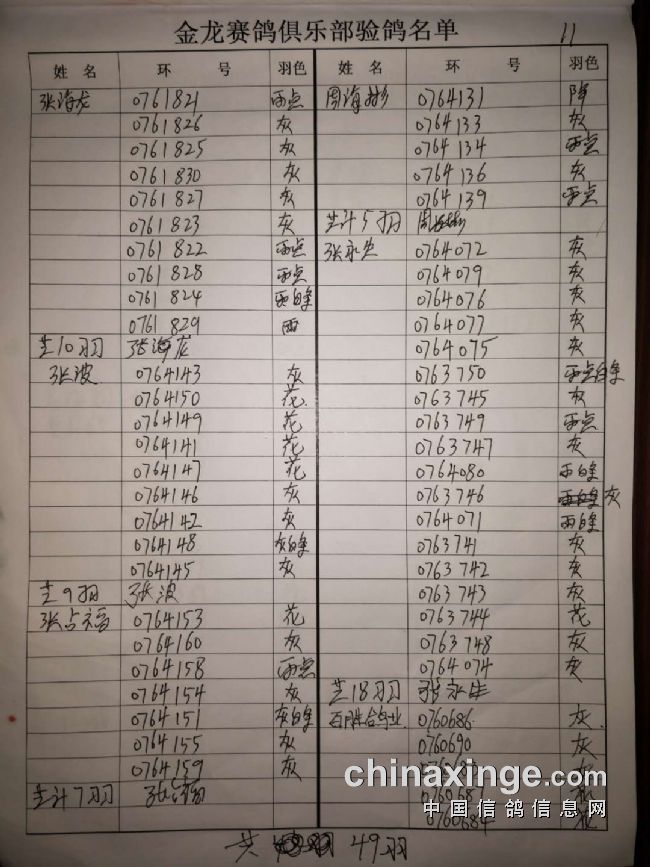 金龙赛鸽俱乐部验鸽名单
11
姓 名 环 号 羽色
张海龙 0761821 雨点
0761826 灰
0761825 灰
0761830 灰
0761827 灰
0761823 灰
0761822 雨点
0761828 雨点
0761824 雨白条
0761829 雨
共10羽 张海龙
张波 0764143 灰
0764150 花
0764149 花
0764141 花
0764147 花
0764146 灰
0764142 灰
0764148 灰白条
0764145 灰
共9羽 张波
张占福 0764153 花
0764160 灰
0764158 雨点
0764154 灰
0764151 灰白条
0764155 灰
0764159 灰
共计7羽
姓 名 环 号 羽色
周海彬 0764131 降
0764133 灰
0764134 雨点
0764136 灰
0764139 雨点
共计5羽 周海彬
张永生 0764072 灰
0764079 灰
0764076 灰
0764077 灰
0764075 灰
0763750 雨点白条
0763745 灰
0763749 雨点
0763747 灰
0764080 雨白条
0763746 灰
0764071 雨白条
0763741 灰
0763742 灰
0763743 灰
0763744 花
0763748 灰
0764074 灰
共18羽 张永生
百胜鸽业 0760686 灰
0760690 灰
0760681
0760684
共 49羽
chinaxinge.com
中国信鸽信息网